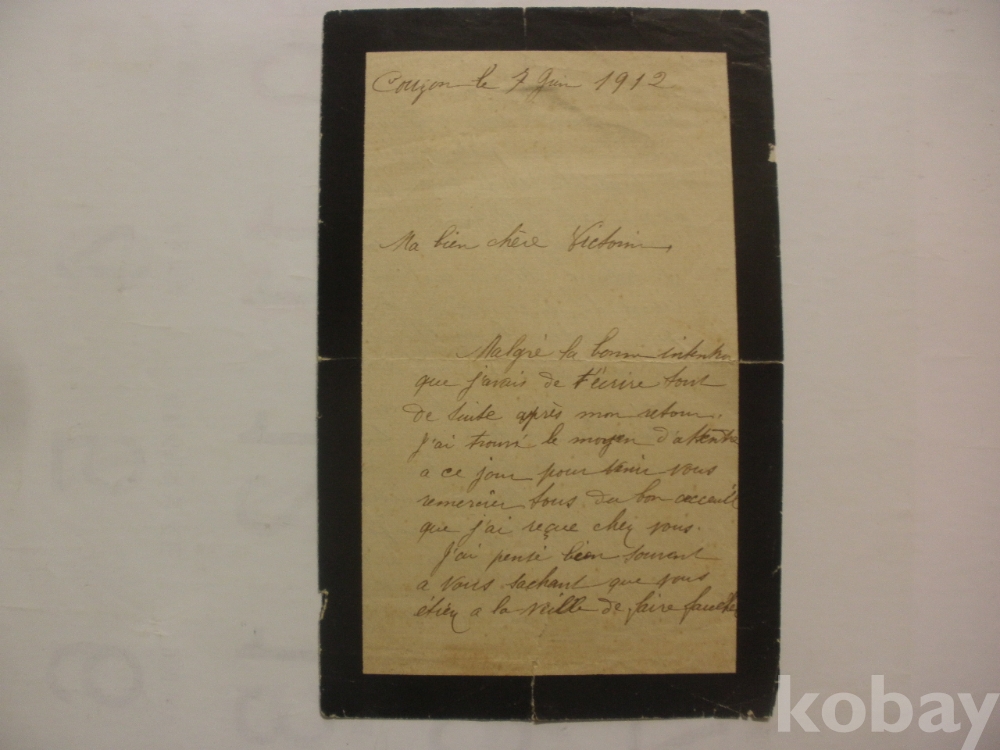 Coujon le 7 Juin 1912
Ma bien chère Victorine
Malgré la bonne intention
que j'avais de t'écrire tout
de suite après mon retour.
J'ai trouvé le moyen d'attendre
a ce jour pour venir vous
remercier tous du bon acceuil
que j'ai reçue chez vous.
J'ai pensé bien souvent
a vous sachant que vous
étiez a la veille de faire faucher
kobay